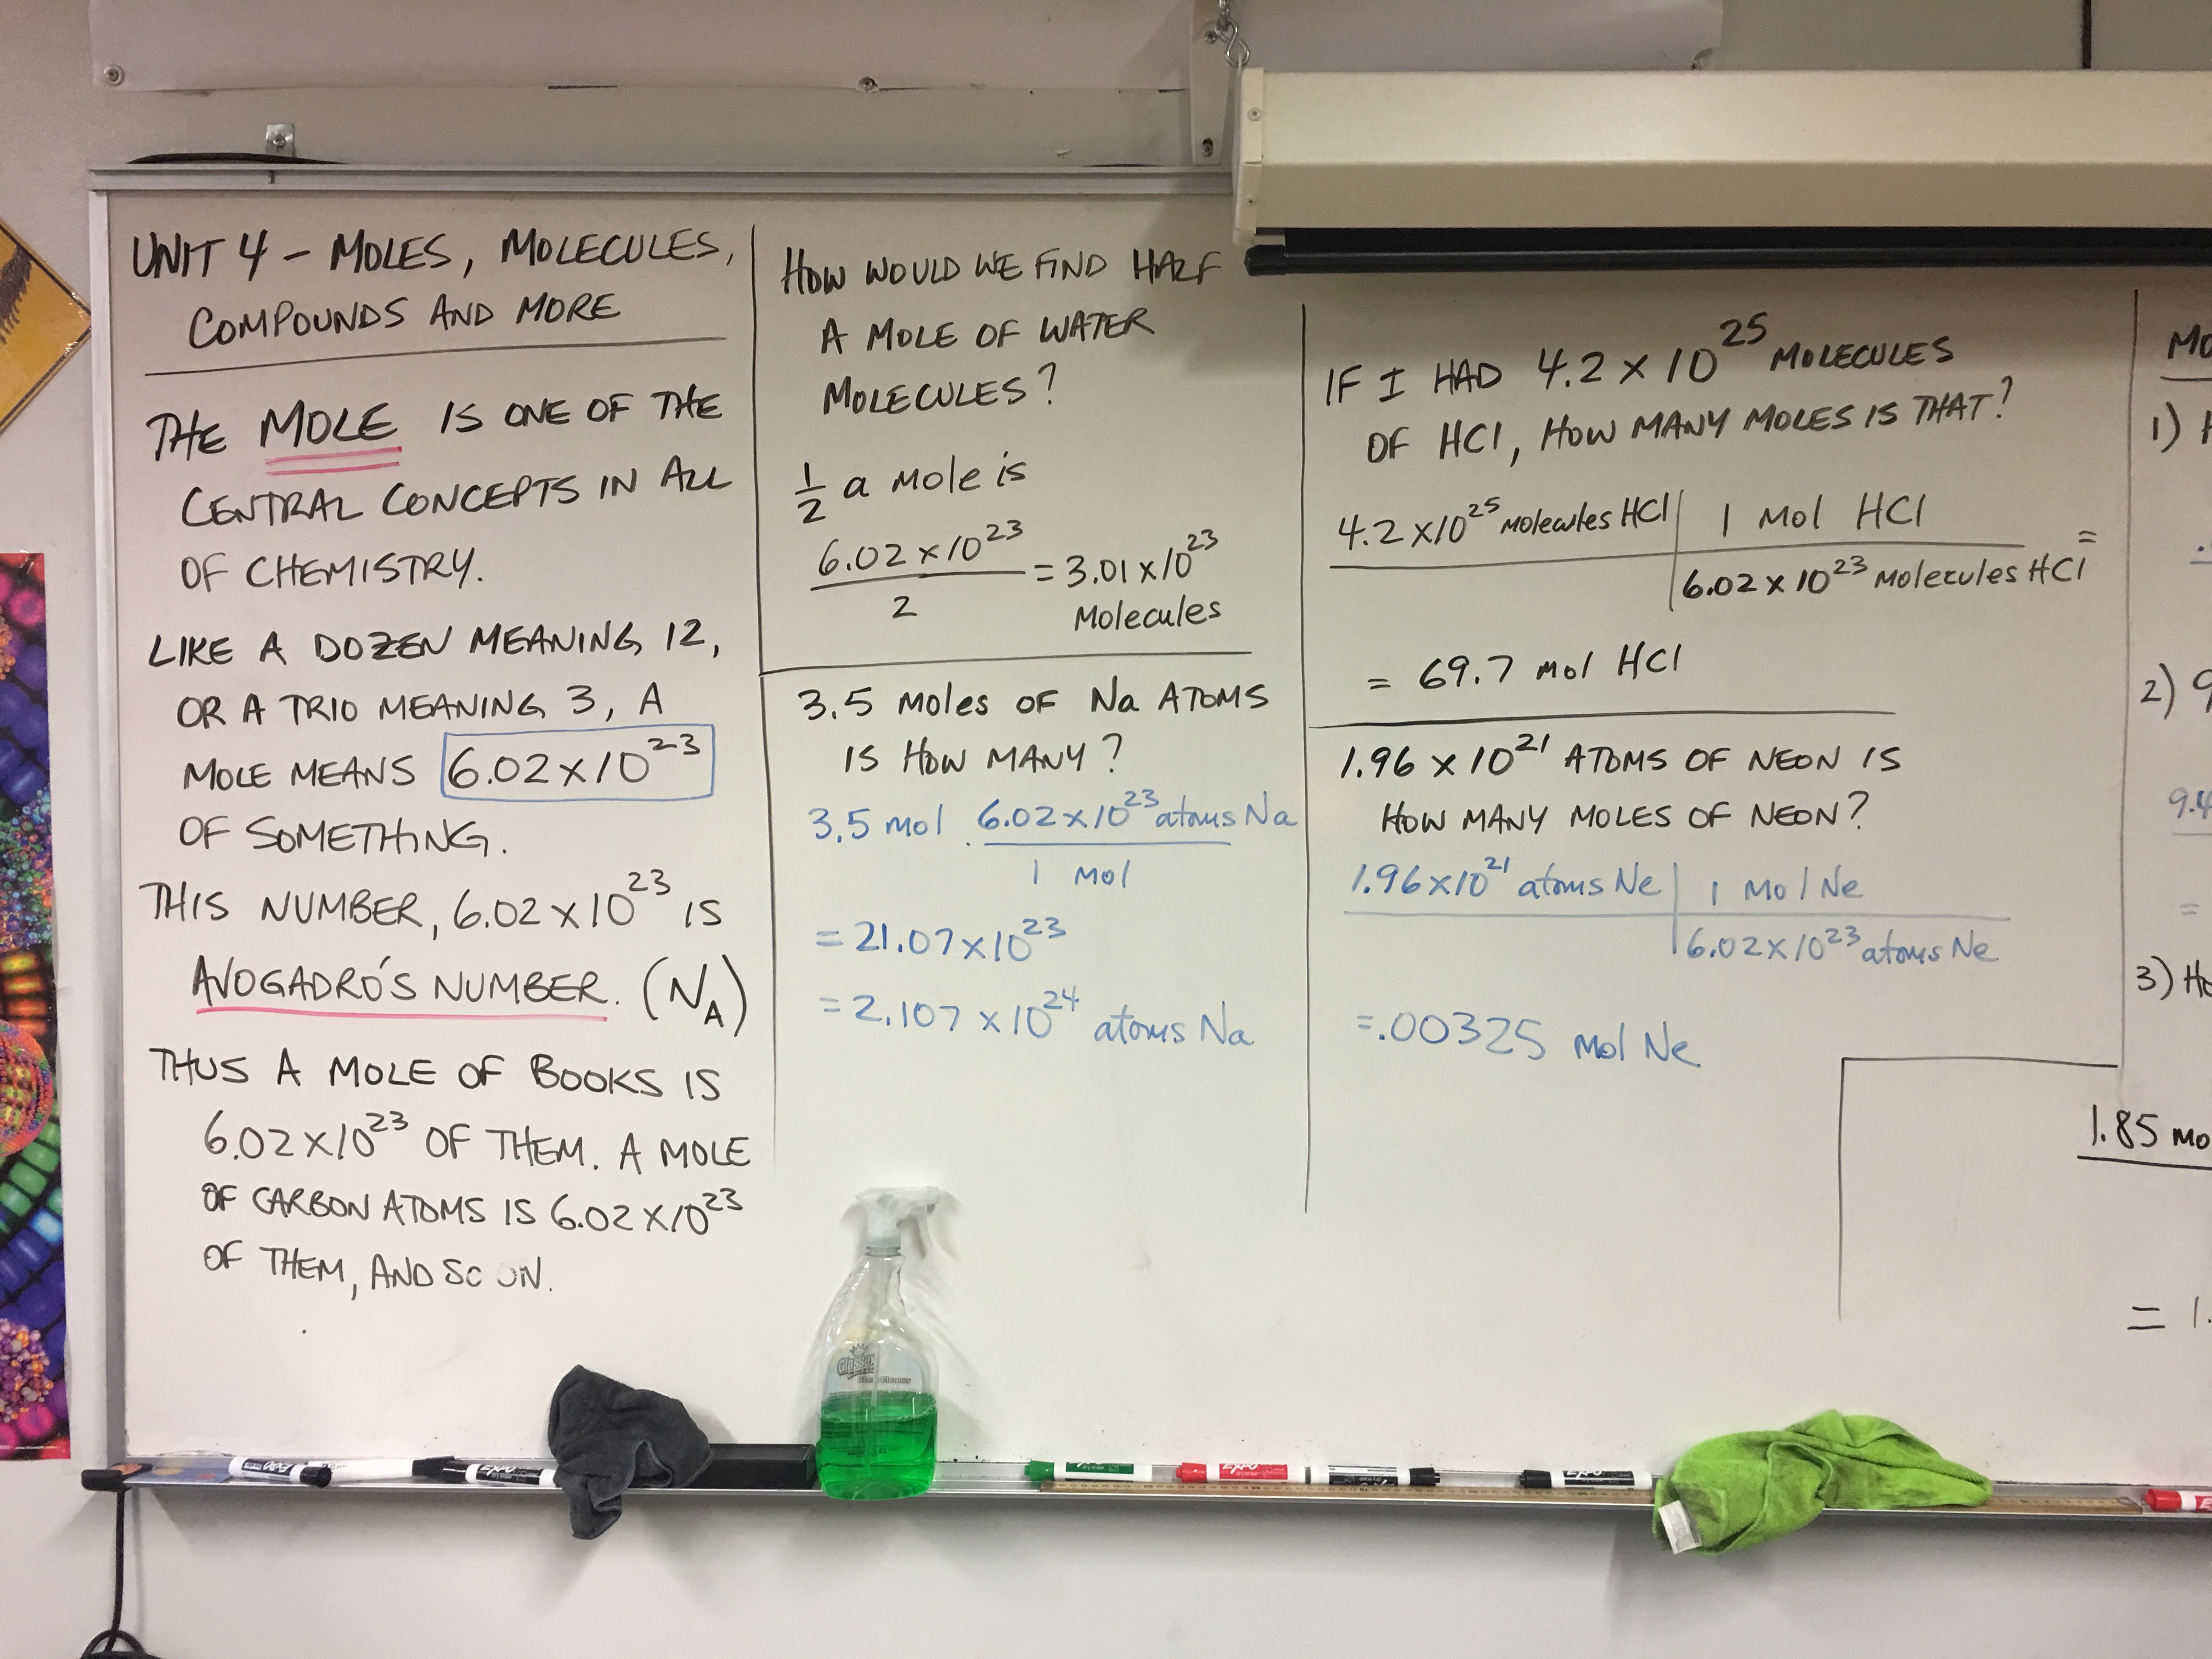 UNIT 4 – MOLES, MOLECULES,
COMPOUNDS AND MORE
THE MOLE IS ONE OF THE
CENTRAL CONCEPTS IN ALL
OF CHEMISTRY.
LIKE A DOZEN MEANING 12,
OR A TRIO MEANING 3, A
MOLE MEANS 6.02 x 10^23
OF SOMETHING.
THIS NUMBER, 6.02 x 10^23 IS
AVOGADRO'S NUMBER. (N_A)
THUS A MOLE OF BOOKS IS
6.02 x 10^23 OF THEM. A MOLE
OF CARBON ATOMS IS 6.02 x 10^23
OF THEM, AND SO ON.
HOW WOULD WE FIND HALF
A MOLE OF WATER
MOLECULES?
1/2 a mole is
6.02 x 10^23 / 2 = 3.01 x 10^23
Molecules
3.5 Moles OF Na ATOMS
IS HOW MANY?
3.5 mol · 6.02 x 10^23 atoms Na
1 mol
= 21.07 x 10^23
= 2.107 x 10^24 atoms Na
IF I HAD 4.2 x 10^25 MOLECULES
OF HCl, HOW MANY MOLES IS THAT?
4.2 x 10^25 Molecules HCl | 1 Mol HCl =
6.02 x 10^23 Molecules HCl
= 69.7 mol HCl
1.96 x 10^21 ATOMS OF NEON IS
HOW MANY MOLES OF NEON?
1.96 x 10^21 atoms Ne | 1 Mol Ne
6.02 x 10^23 atoms Ne
= .00325 mol Ne
1)
2) 9
9.4
=
3)
1.85 mo
= 1.
EXPO
EXPO
EXPO